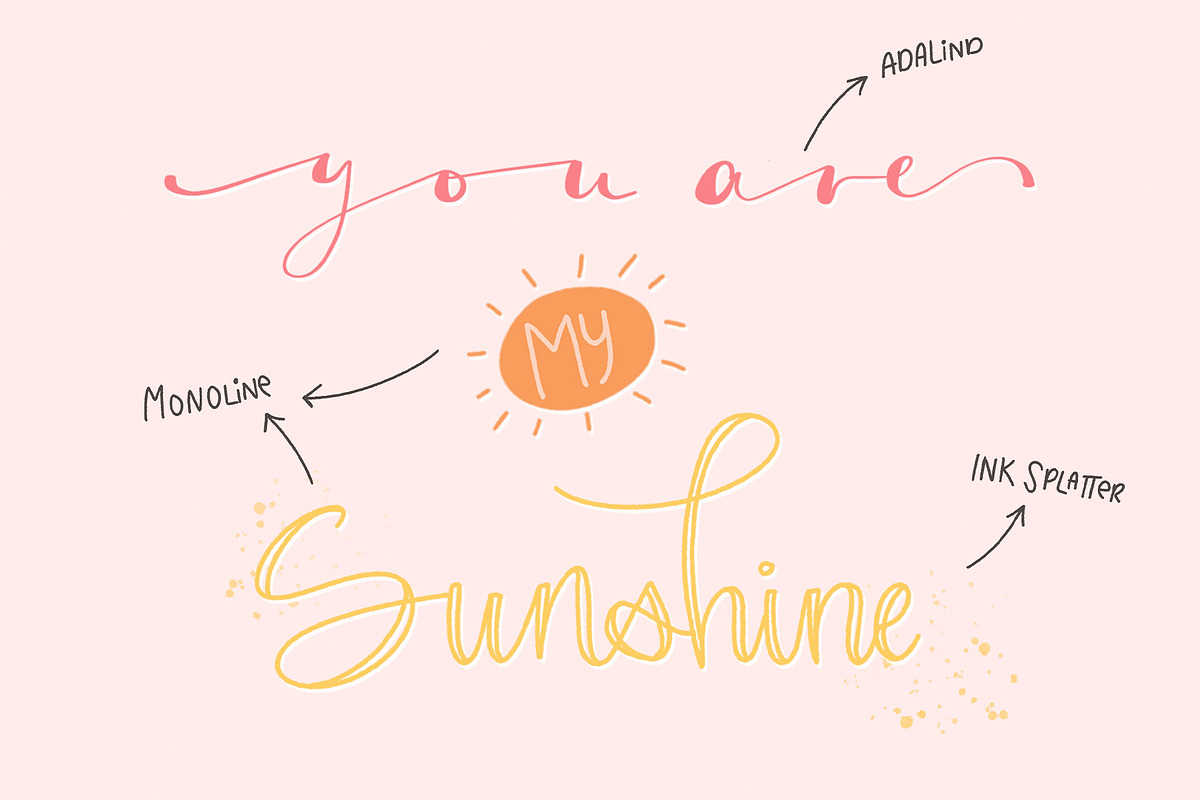 ADALiND
you are
My
MONOLiNe
Sunshine
INK SPLATTeR